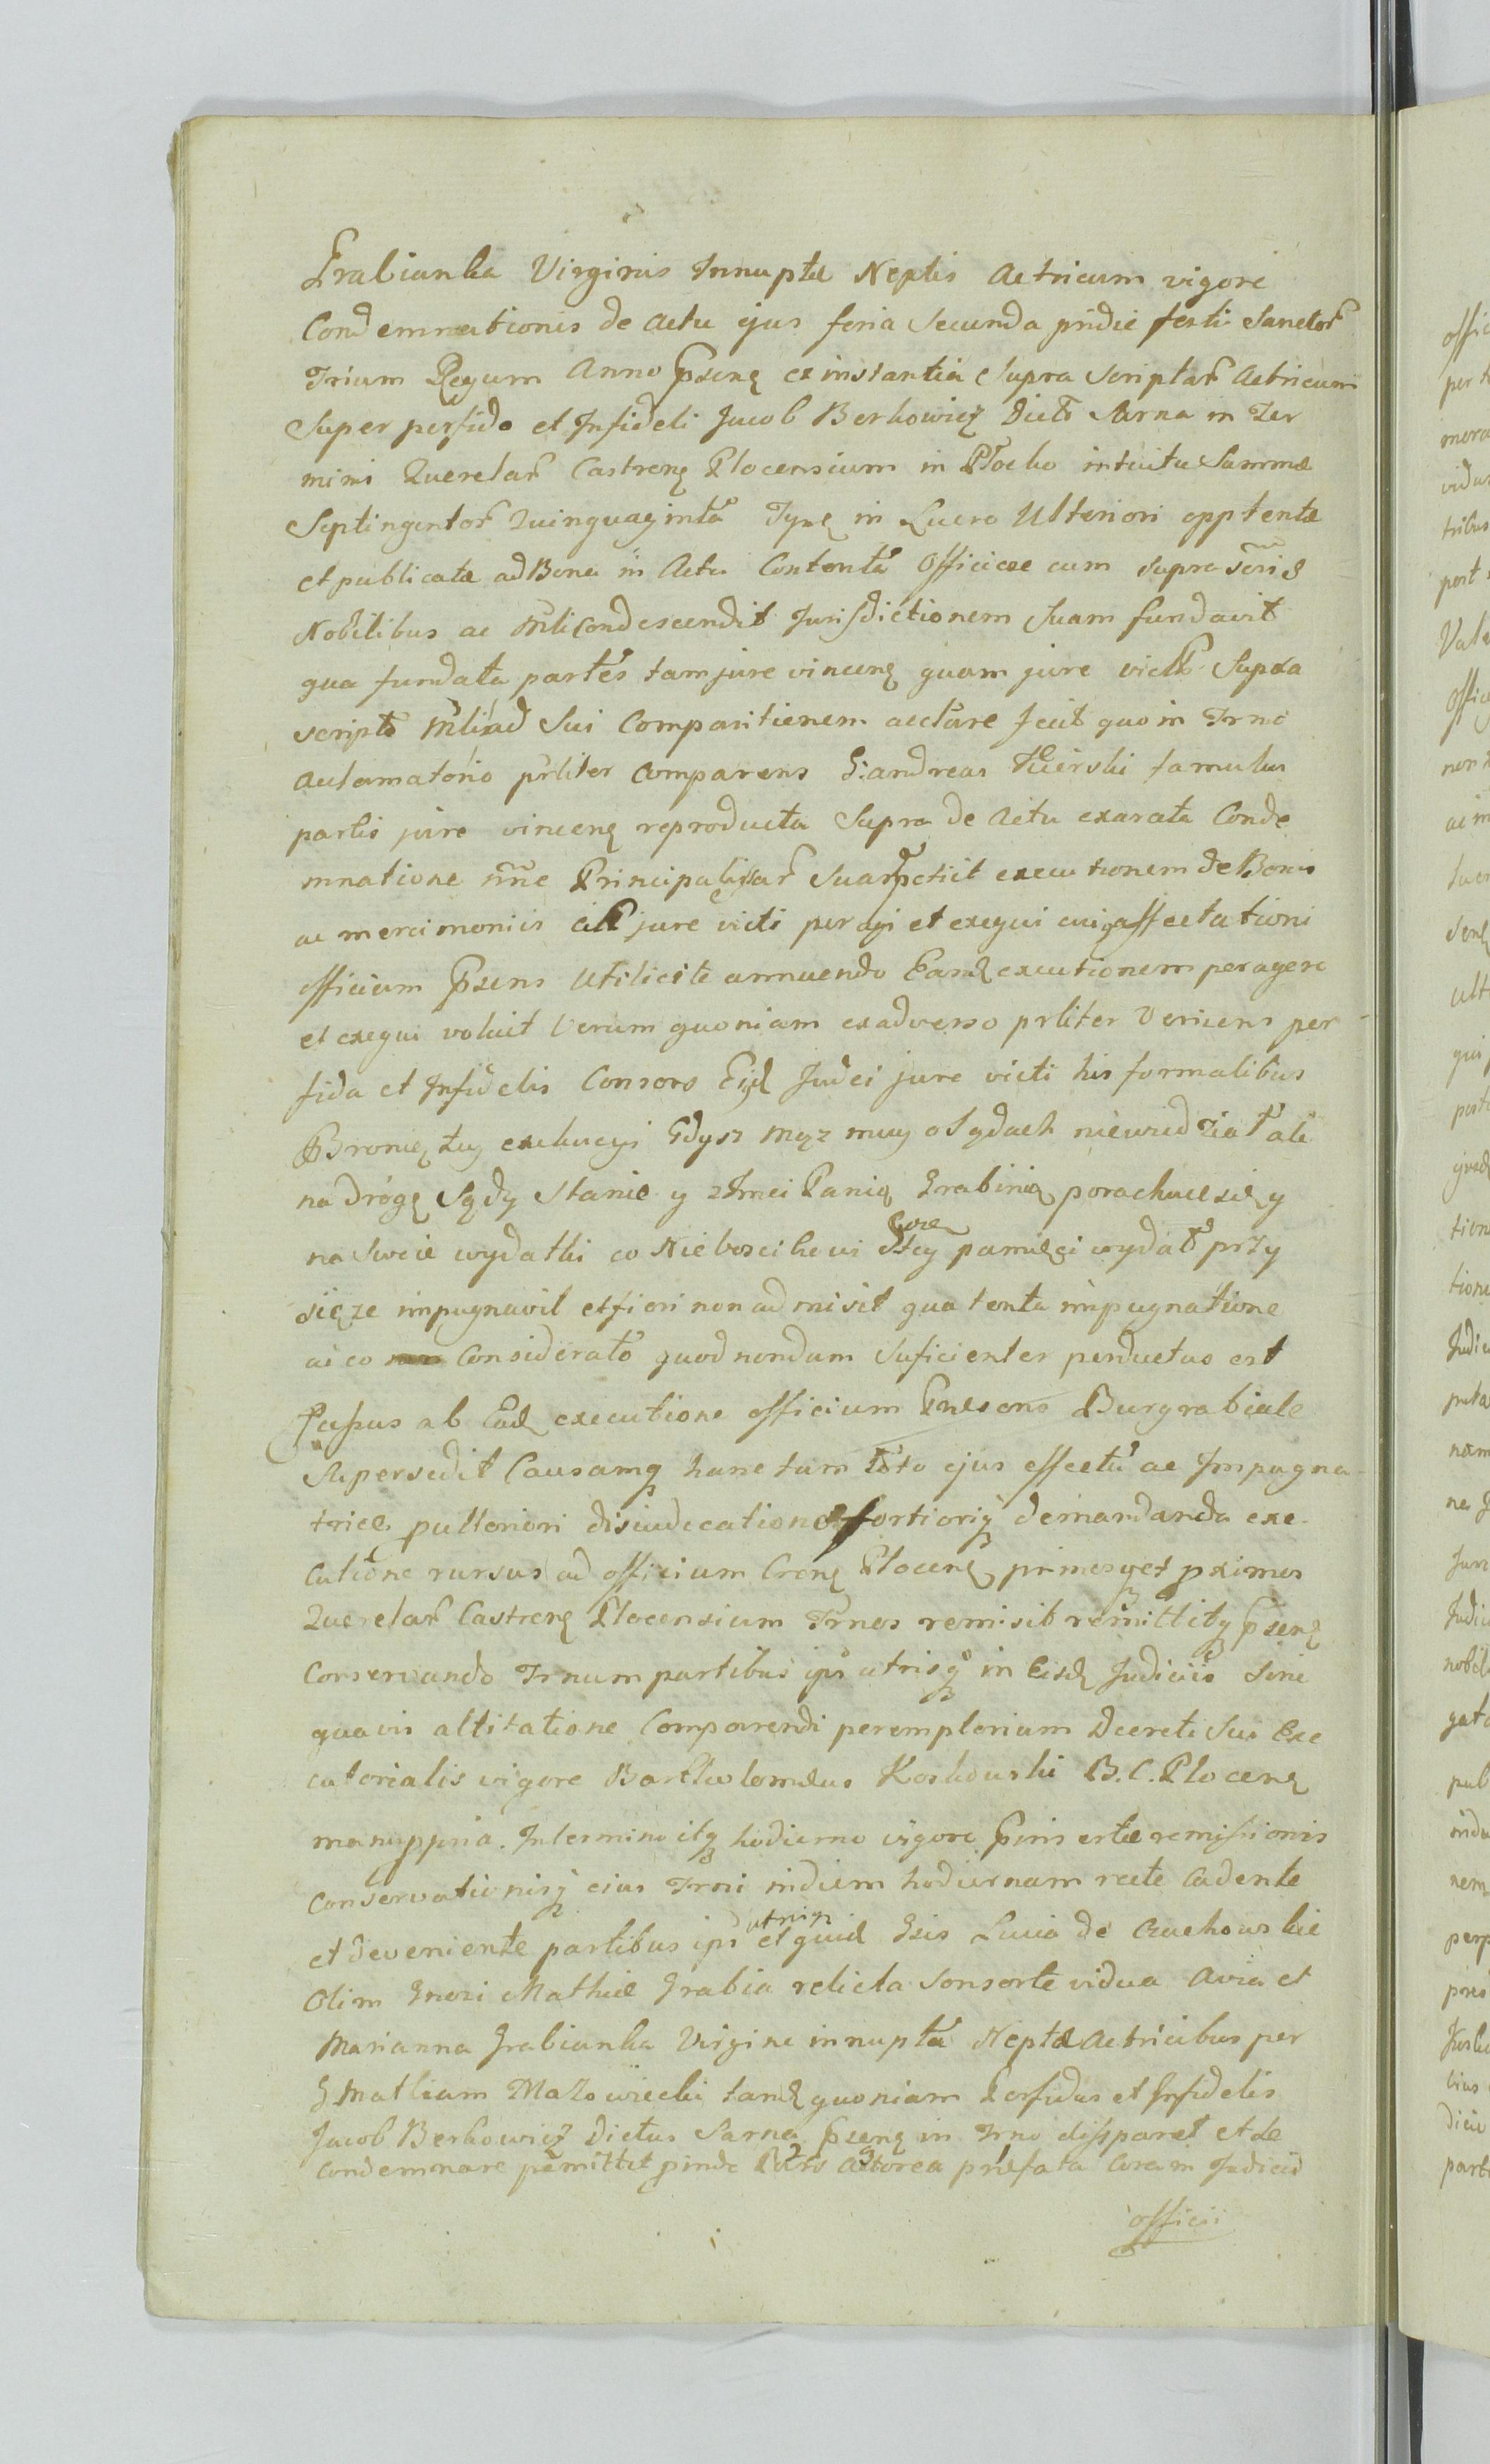 Grabianka Virginis Innuptæ Neptis Actricum vigore
Condemnationis de Actu ejus feria Secunda pridie festi Sanctor
Trium Regum Anno Psenę ex instantia Supra Scriptar Actricum
Super perfido et Infideli Jacob Berkowicz dicto Sarna in Ter
minis Querelar Castrenę Plocensium in Płocko intuitu Summæ
Septingentor Quinquaginta Tynę in Lucro Ulteriori opptentæ
et publicatæ ad Bona in Actu Contenta Officiose cum supra
Nobilibus ac Mli Condescendit Jurisdictionem Suam fundavit
qua fundata partes tam jure vincenę quam jure victā Supra
scripto Mli ad Sui Comparitionem acclare fecit quo in Trno
acclamatorio prliter Comparens G: Andreas famulus
partis jure vincenę reproducta Supra de Actu exarata Conde
mnatione nne Principalissar Suar petiit executionem de Bonis
ac mercimoniis jure victi peragi et exequi cuiq affectationi
officium Psens Utilicite annuendo Eandę executionem peragere
et exequi voluit Verum quoniam ex adverso prliter Veniens per
fida et Infidelis Consors Ejd Judei jure victi his formalibus
Bronię tey exekucyi Gdysz mąz muy o Sądach niewiedział ale
na drogę Sądy Stanie y z Imci Panią Grabiną porachuie się y
na Swoie wydatki co Nieboscikowi Swey pamięci wydał przy
sięze impugnavit et fieri non admisit qua tenta impugnatione
ac eo Considerato quod nondum Suficienter perductus est
Passus ab Eadę executione officium Præsens Burgrabiale
Supersedit Causamq hanc tam toto ejus effectu ac Impugna-
trice pulleriori disiudicatione fortioriq demandanda exe-
cutione rursus ad officium Crenę Plocenę primosq et pximos
Querelar Castrenę Plocensium Trnos remisit remittitq psenę
Conservando Trnum partibus ips utrisq in Eisdę Judiciis Sine
quavis altitatione Comparendi peremptorium Decreti Sui Exe
cutorialis vigore Bartholomæus Koskowski B.C. Plocenę
manuppria. In termino itq hodierno vigore psinsertæ remissionis
Conservationisq eius Trni in diem hodiernam recte Cadente
et deveniente partibus ips utrisq et quid Gsis Lucia de Czuchowskie
Olim Gnosi Mathiæ Grabia relicta Consorte vidua Avia et
Marianna Grabianka Virgine innupta Neptæ Actricibus per
G Mathiam Mazowiecki tandę quoniam Perfidus et Infidelis
Jacob Berkowicz dictus Sarna psenę in Trno disparet et se
Condemnare pemittet pinde Pars Actorea præfata Coram Judicio
officii